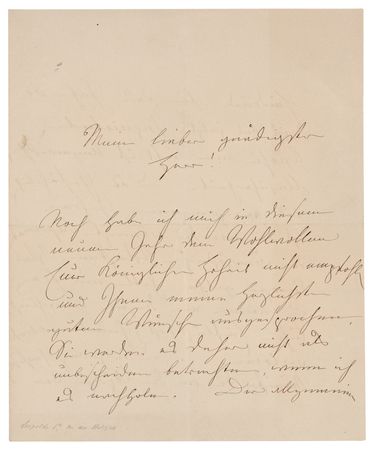 Mein lieber gnädigster
Herr!
Noch habe ich mich in diesem
neuen Jahr dem Wohlwollen
Eurer Königlichen Hoheit nicht empfohlen
und Ihnen meine herzlichsten
guten Wünsche ausgesprochen.
Sie werden es daher nicht als
unbescheiden betrachten, wenn ich
es nachhole. Die Allgemeine